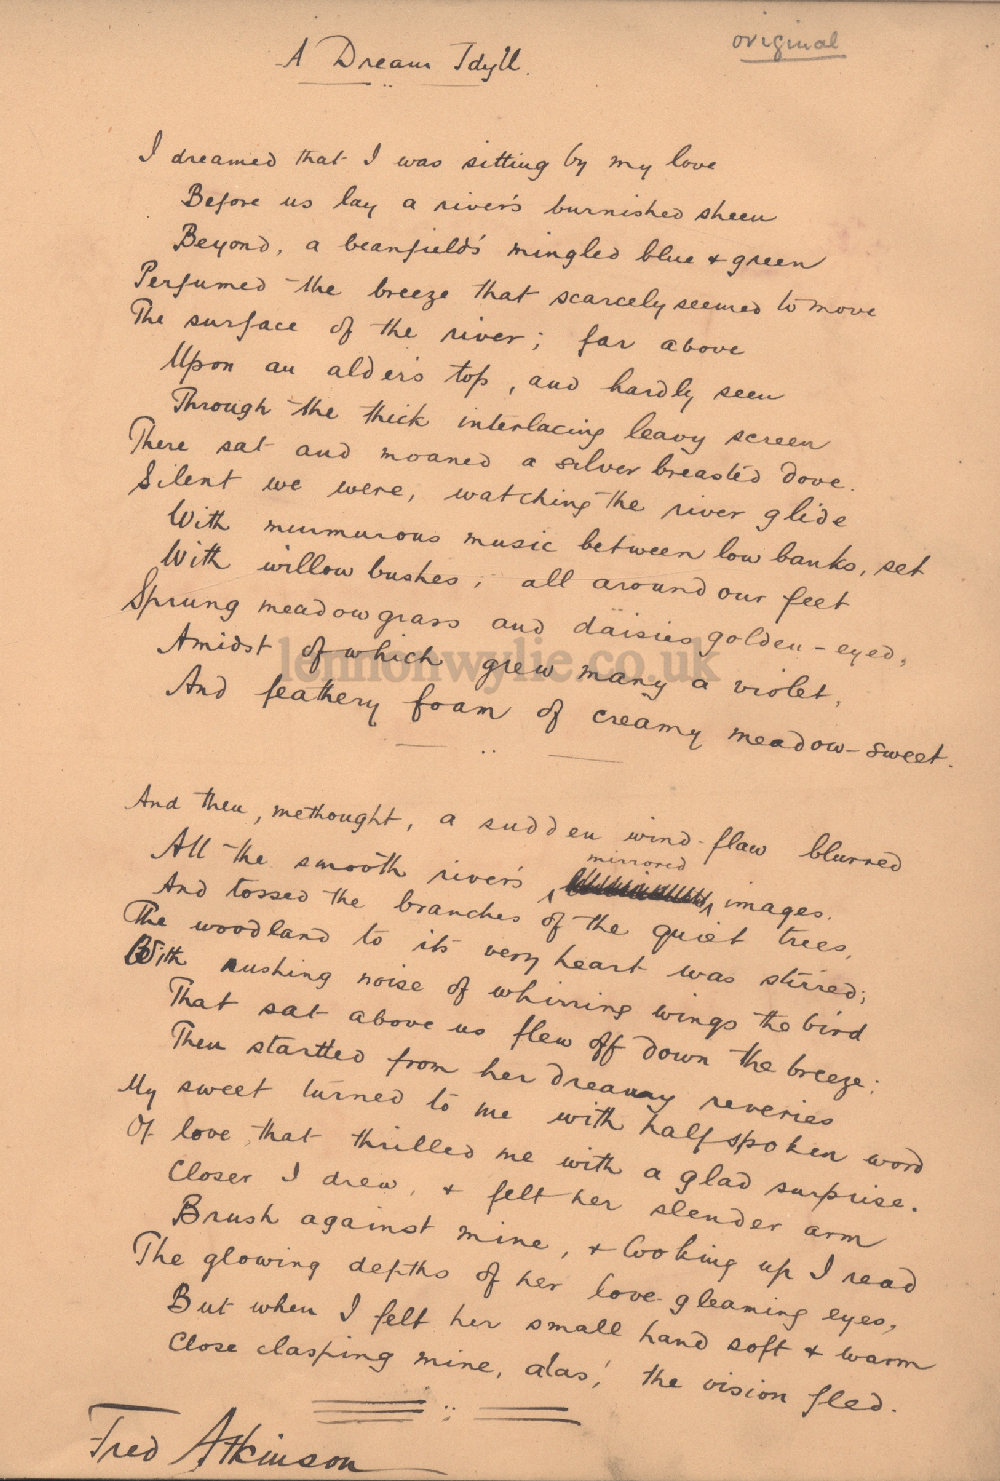 original
A Dream Idyll.
I dreamed that I was sitting by my love
Before us lay a river's burnished sheen
Beyond, a beanfield's mingled blue & green
Perfumed the breeze that scarcely seemed to move
The surface of the river; far above
Upon an alder's top, and hardly seen
Through the thick interlacing leavy screen
There sat and moaned a silver breasted dove.
Silent we were, watching the river glide
With murmurous music between low banks, set
With willow bushes; all around our feet
Sprung meadow grass and daisies golden-eyed,
Amidst of which grew many a violet,
And feathery foam of creamy meadow-sweet.
lennonwylie.co.uk
And then, methought, a sudden wind-flaw blurred
All the smooth river's mirrored images.
And tossed the branches of the quiet trees,
The woodland to its very heart was stirred;
With rushing noise of whirring wings the bird
That sat above us flew off down the breeze;
Then startled from her dreamy reveries
My sweet turned to me with half spoken word
Of love, that thrilled me with a glad surprise.
Closer I drew, & felt her slender arm
Brush against mine, & looking up I read
The glowing depths of her love-gleaming eyes,
But when I felt her small hand soft & warm
Close clasping mine, alas! the vision fled.
Fred Atkinson